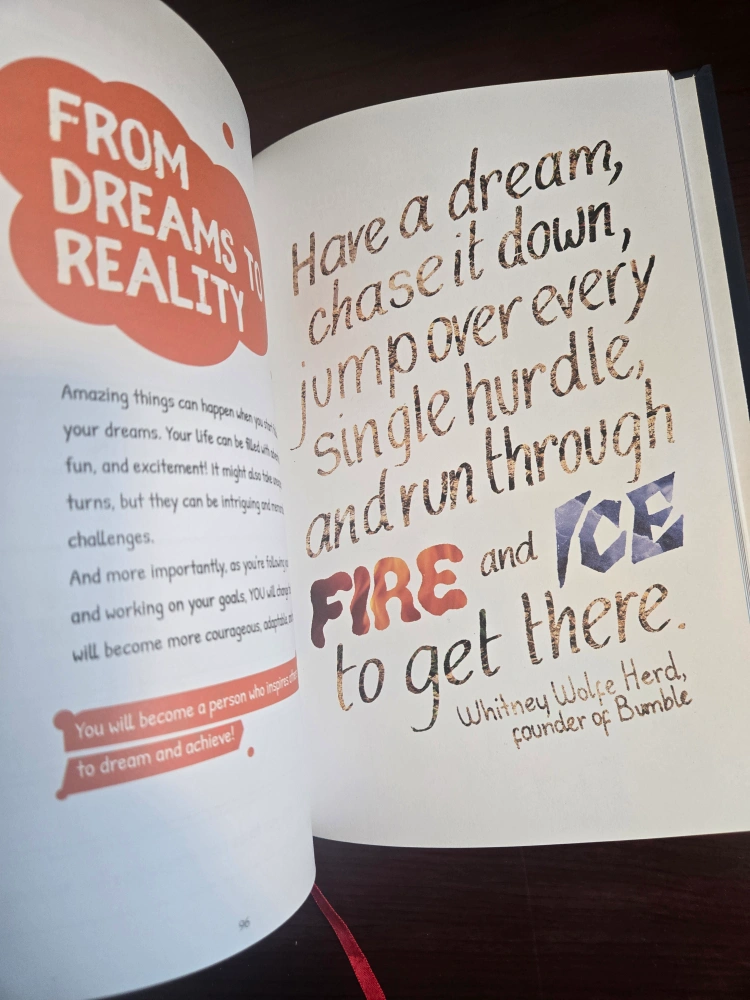 FROM
DREAMS TO
REALITY
Amazing things can happen when you
your dreams. Your life can be filled with
fun, and excitement! It might also take
turns, but they can be intriguing and
challenges.
And more importantly, as you're following
and working on your goals, YOU will change
will become more courageous, adaptable,
You will become a person who inspires
to dream and achieve!
96
Have a dream,
chase it down,
jump over every
single hurdle,
and run through
FIRE and ICE
to get there.
Whitney Wolfe Herd,
founder of Bumble